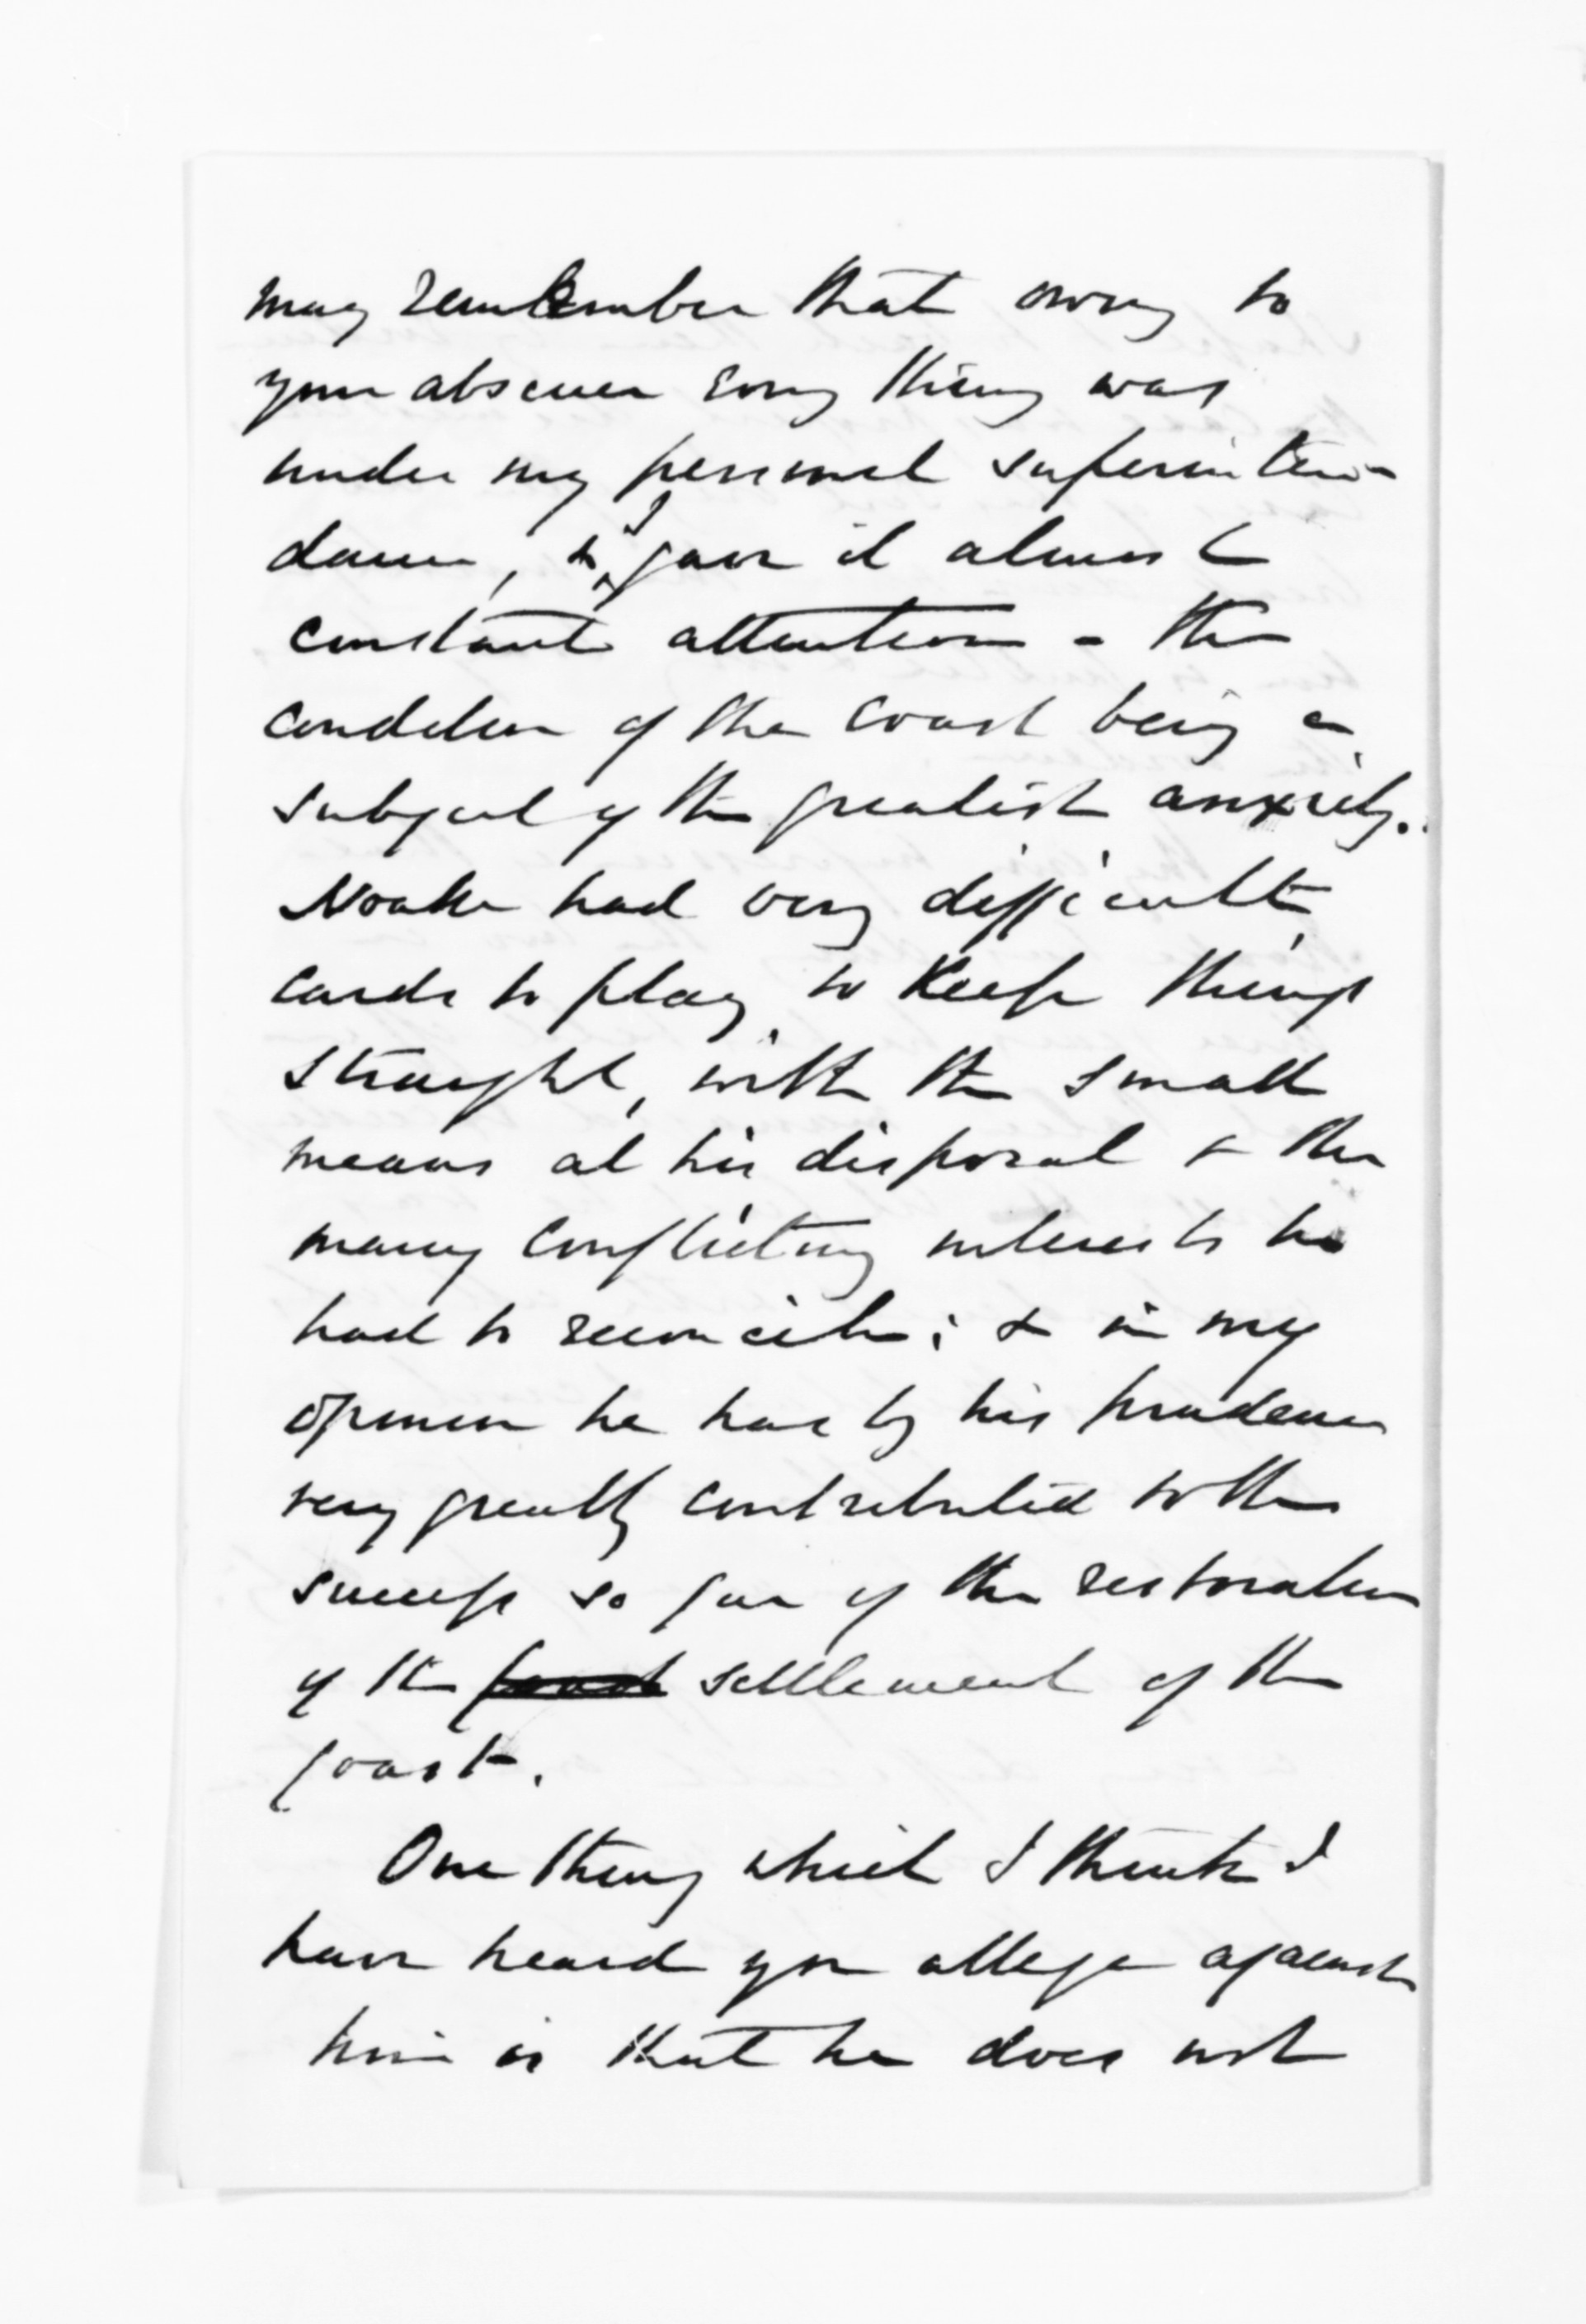 may remember that owing to
your absence every thing was
under my personal superinten-
dance, & I gave it almost
constant attention - the
condition of the Coast being a
subject of the greatest anxiety.
Noake had very difficult
cards to play, to Keep things
straight, with the small
means at his disposal & the
many conflicting interests he
had to reconcile; & in my
opinion he has by his prudence
very greatly contributed to the
success so far of the restoration
of the settlement of the
Coast.
One thing which I think I
have heard you allege against
him is that he does not